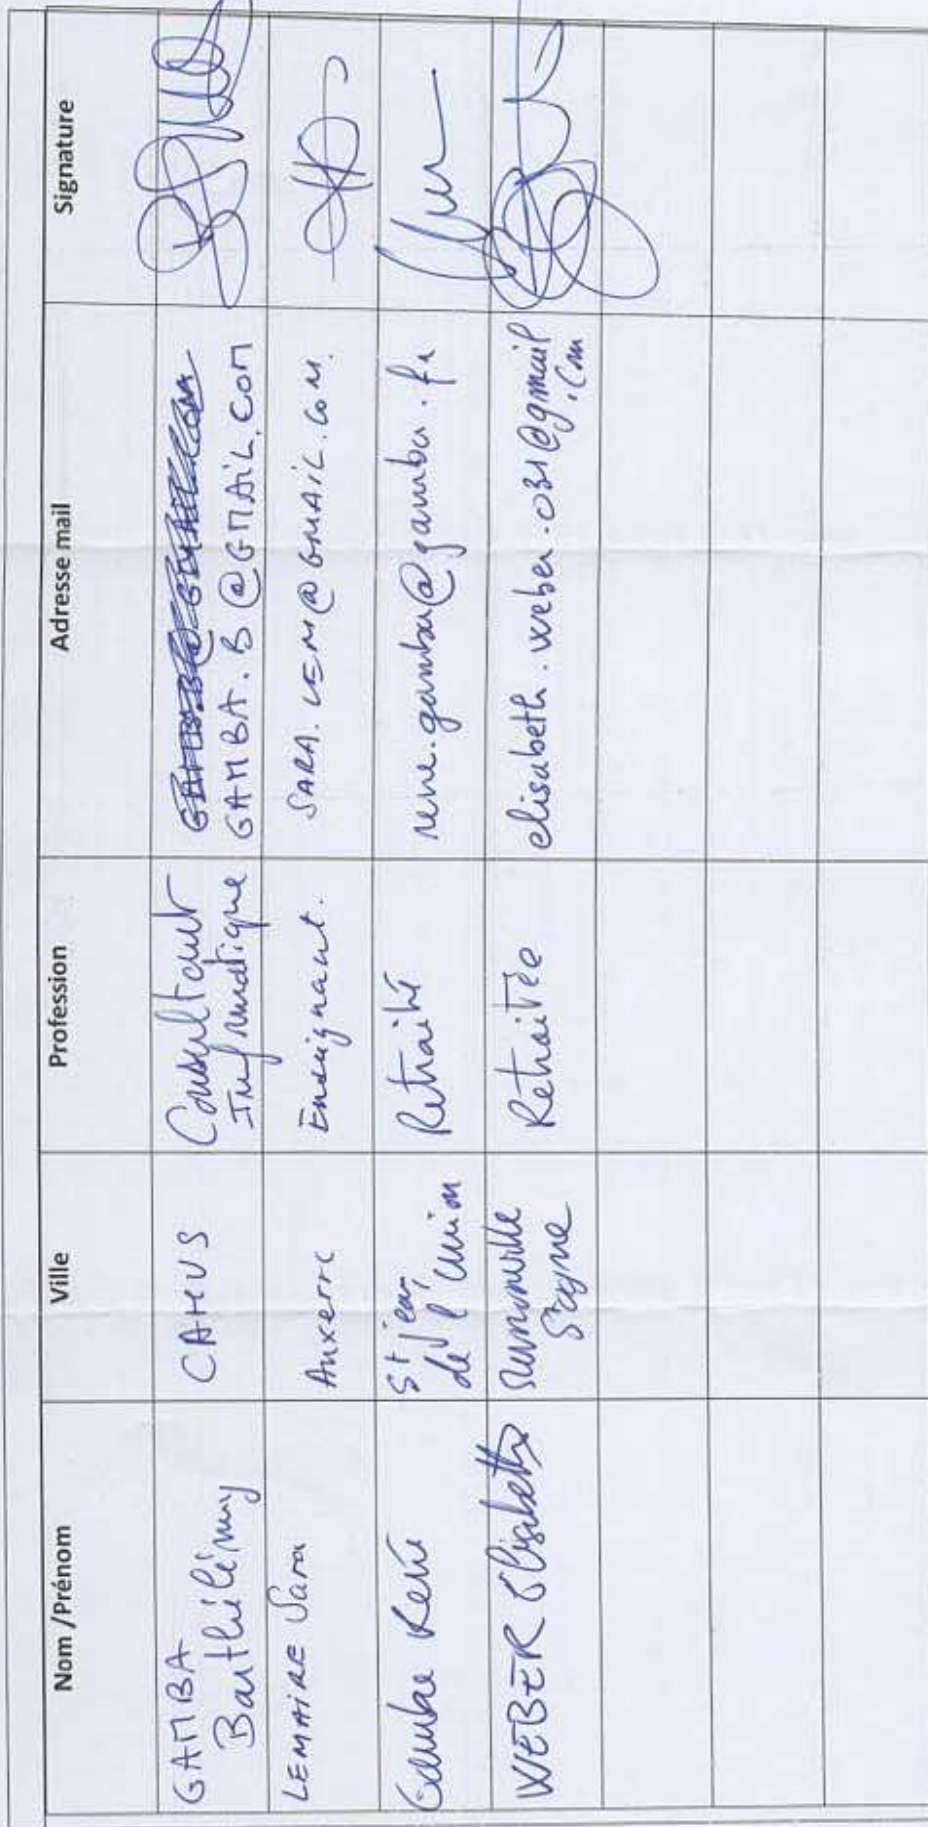 Nom /Prénom Ville Profession Adresse mail Signature
GAMBA Barthélémy CAHUS Consultant Informatique GAMBA.B@GMAIL.COM
LEMAIRE Sara Auxerre Enseignant. SARA.LEM@GMAIL.COM.
Gamba René St jean de l'union Retraité rene.gamba@gamba.fr
WEBER Elisabeth Retraitée elisabeth.weber.031@gmail.com